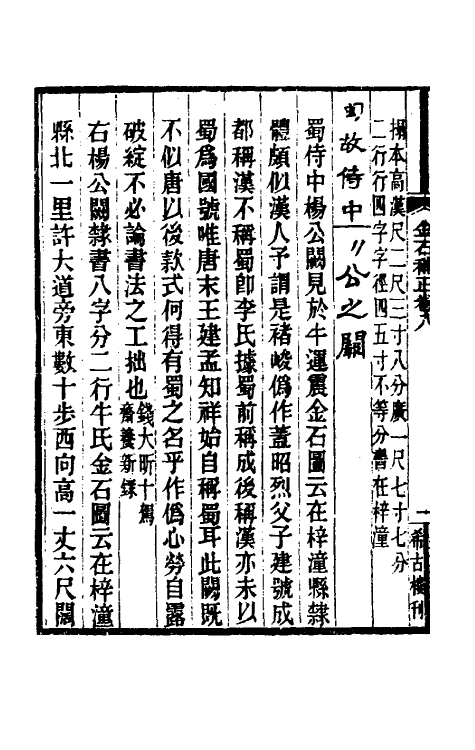 金石補正卷八
一
希古樓刊
搨本高漢尺二尺三寸八分廣一尺七寸七分
二行行四字字徑四五寸不等分書在梓潼
故侍中
公之闕
蜀侍中楊公闕見於牛運震金石圖云在梓潼縣隸
體頗似漢人予謂是褚峻僞作蓋昭烈父子建號成
都稱漢不稱蜀卽李氏據蜀前稱成後稱漢亦未以
蜀爲國號唯唐末王建孟知祥始自稱蜀耳此闕既
不似唐以後款式何得有蜀之名乎作僞心勞自露
破綻不必論書法之工拙也錢大昕十駕
齋養新錄
右楊公闕隸書八字分二行牛氏金石圖云在梓潼
縣北一里許大道旁東數十步西向高一丈六尺闊